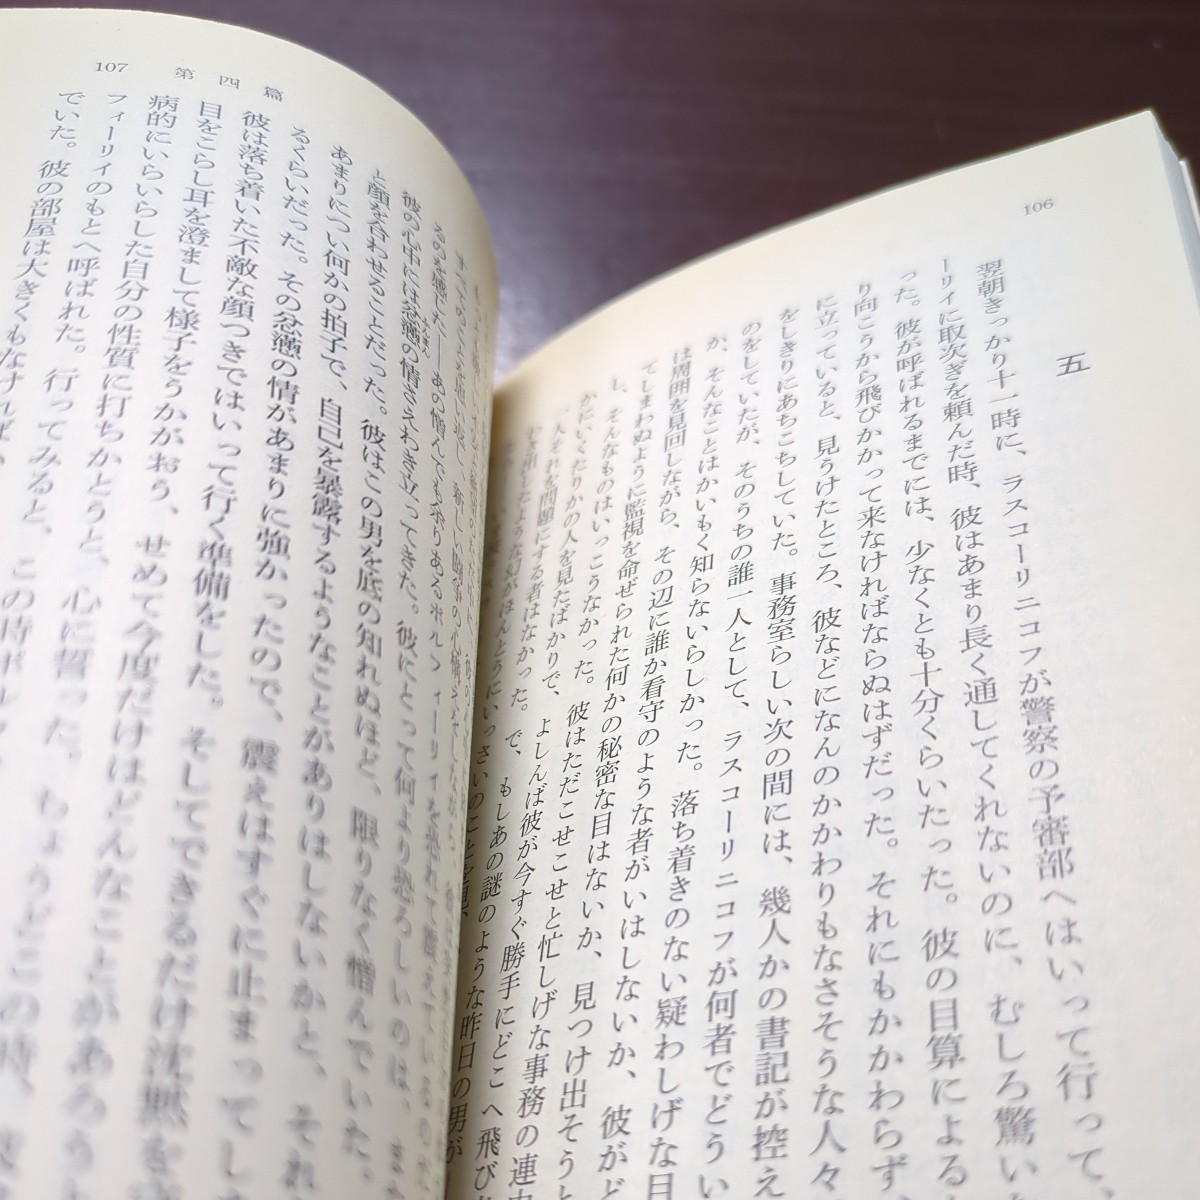 106
五
翌朝きっかり十一時に、ラスコーリニコフが警察の予審部へはいって行って、
ーリイに取次ぎを頼んだ時、彼はあまり長く通してくれないのに、むしろ驚い
った。彼が呼ばれるまでには、少なくとも十分くらいたった。彼の目算による
り向こうから飛びかかって来なければならぬはずだった。それにもかかわらず
に立っていると、見うけたところ、彼などになんのかかわりもなさそうな人々
をしきりにあちこちしていた。事務室らしい次の間には、幾人かの書記が控え
のをしていたが、そのうちの誰一人として、ラスコーリニコフが何者でどうい
か、そんなことはかいもく知らないらしかった。落ち着きのない疑わしげな目
は周囲を見回しながら、その辺に誰か看守のような者がいはしないか、彼がど
てしまわぬように監視を命ぜられた何かの秘密な目はないか、見つけ出そうと
し、そんなものはいっこうなかった。彼はただこせこせと忙しげな事務の連中
かにいくたりかの人を見たばかりで、よしんば彼が今すぐ勝手にどこへ飛び
一人それを問題にする者はなかった。で、もしあの謎のような昨日の男が
107 第四篇
るのを感じた――あの憎んでも余りあるポルフィーリイを恐れて震えている
彼の心中には忿懣の情さえわき立ってきた。彼にとって何より恐ろしいのは、また
ふんまん
と顔を合わせることだった。彼はこの男を底の知れぬほど、限りなく憎んでいた。
あまりについ何かの拍子で、自己を暴露するようなことがありはしないかと、それ
るくらいだった。その忿懣の情があまりに強かったので、震えはすぐに止まってし
彼は落ち着いた不敵な顔つきではいって行く準備をした。そしてできるだけ沈黙を
目をこらし耳を澄まして様子をうかがおう、せめて今度だけはどんなことがあろう
病的にいらいらした自分の性質に打ちかとうと、心に誓った。ちょうどこの時、
フィーリイのもとへ呼ばれた。行ってみると、この時ポルフ
でいた。彼の部屋は大きくもなければ